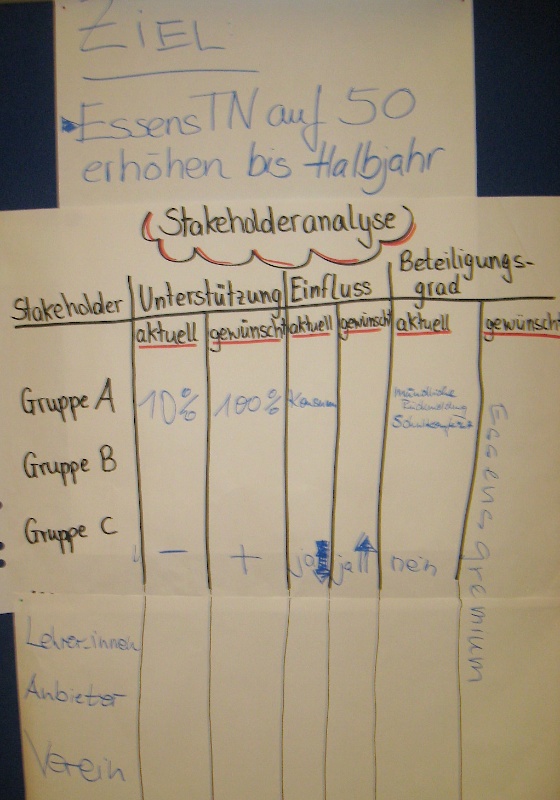 ZIEL
EssensTN auf 50
erhöhen bis Halbjahr
Stakeholderanalyse
Stakeholder Unterstützung Einfluss Beteiligungs-
grad
aktuell gewünscht aktuell gewünscht aktuell gewünscht
Gruppe A 10% 100% Konsum mündliche
Rückmeldung
Schulkonferenz
Gruppe B
Gruppe C
- + ja ja nein
Essensgremium
Lehrer.innen
Anbieter
Verein